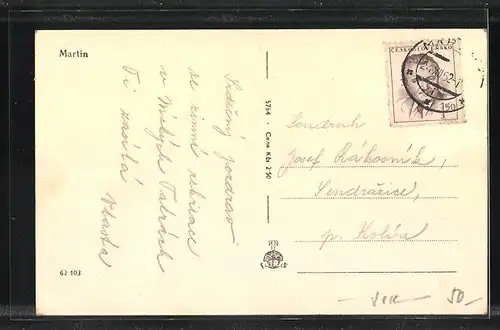 Martin
Srdečný pozdrav
ze zimní rekreace
v Malých Tatrách
Ti zasílá Vlasta
62 103
5764 - Cena Kčs 2·50
ČESKOSLOVENSKO
Soudruh
Josef Rákosník,
Sendražice,
p. Kolín
50.-